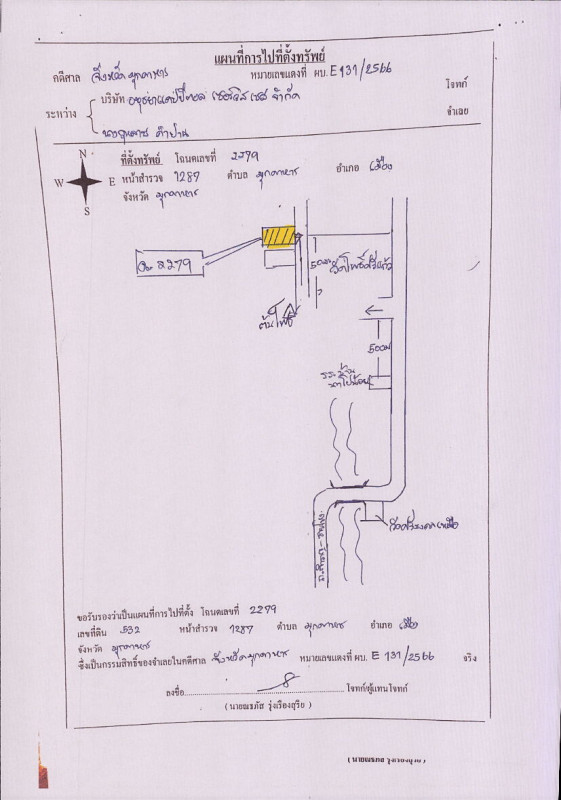 แผนที่การไปที่ตั้งทรัพย์
คดีศาล จังหวัดมุกดาหาร หมายเลขแดงที่ ผบ. E 131/2566
บริษัท อยุธยาแคปปิตอล เซอร์วิสเซส จำกัด โจทก์
ระหว่าง
จำเลย
N
W E
S
ที่ตั้งทรัพย์ โฉนดเลขที่ 2279
หน้าสำรวจ 1287 ตำบล มุกดาหาร อำเภอ เมือง
จังหวัด มุกดาหาร
2279
วัดโพธิ์ศรีแก้ว
ต้นโพธิ์
500ม
ขอรับรองว่าเป็นแผนที่การไปที่ตั้ง โฉนดเลขที่ 2279
เลขที่ดิน 532 หน้าสำรวจ 1287 ตำบล มุกดาหาร อำเภอ เมือง
จังหวัด มุกดาหาร
ซึ่งเป็นกรรมสิทธิ์ของจำเลยในคดีศาล จังหวัดมุกดาหาร หมายเลขแดงที่ ผบ. E 131/2566 จริง
ลงชื่อ โจทก์/ผู้แทนโจทก์
(นายณรภัส รุ่งเรืองสุริย)
(นายณรภัส รุ่งเรืองสุริย)